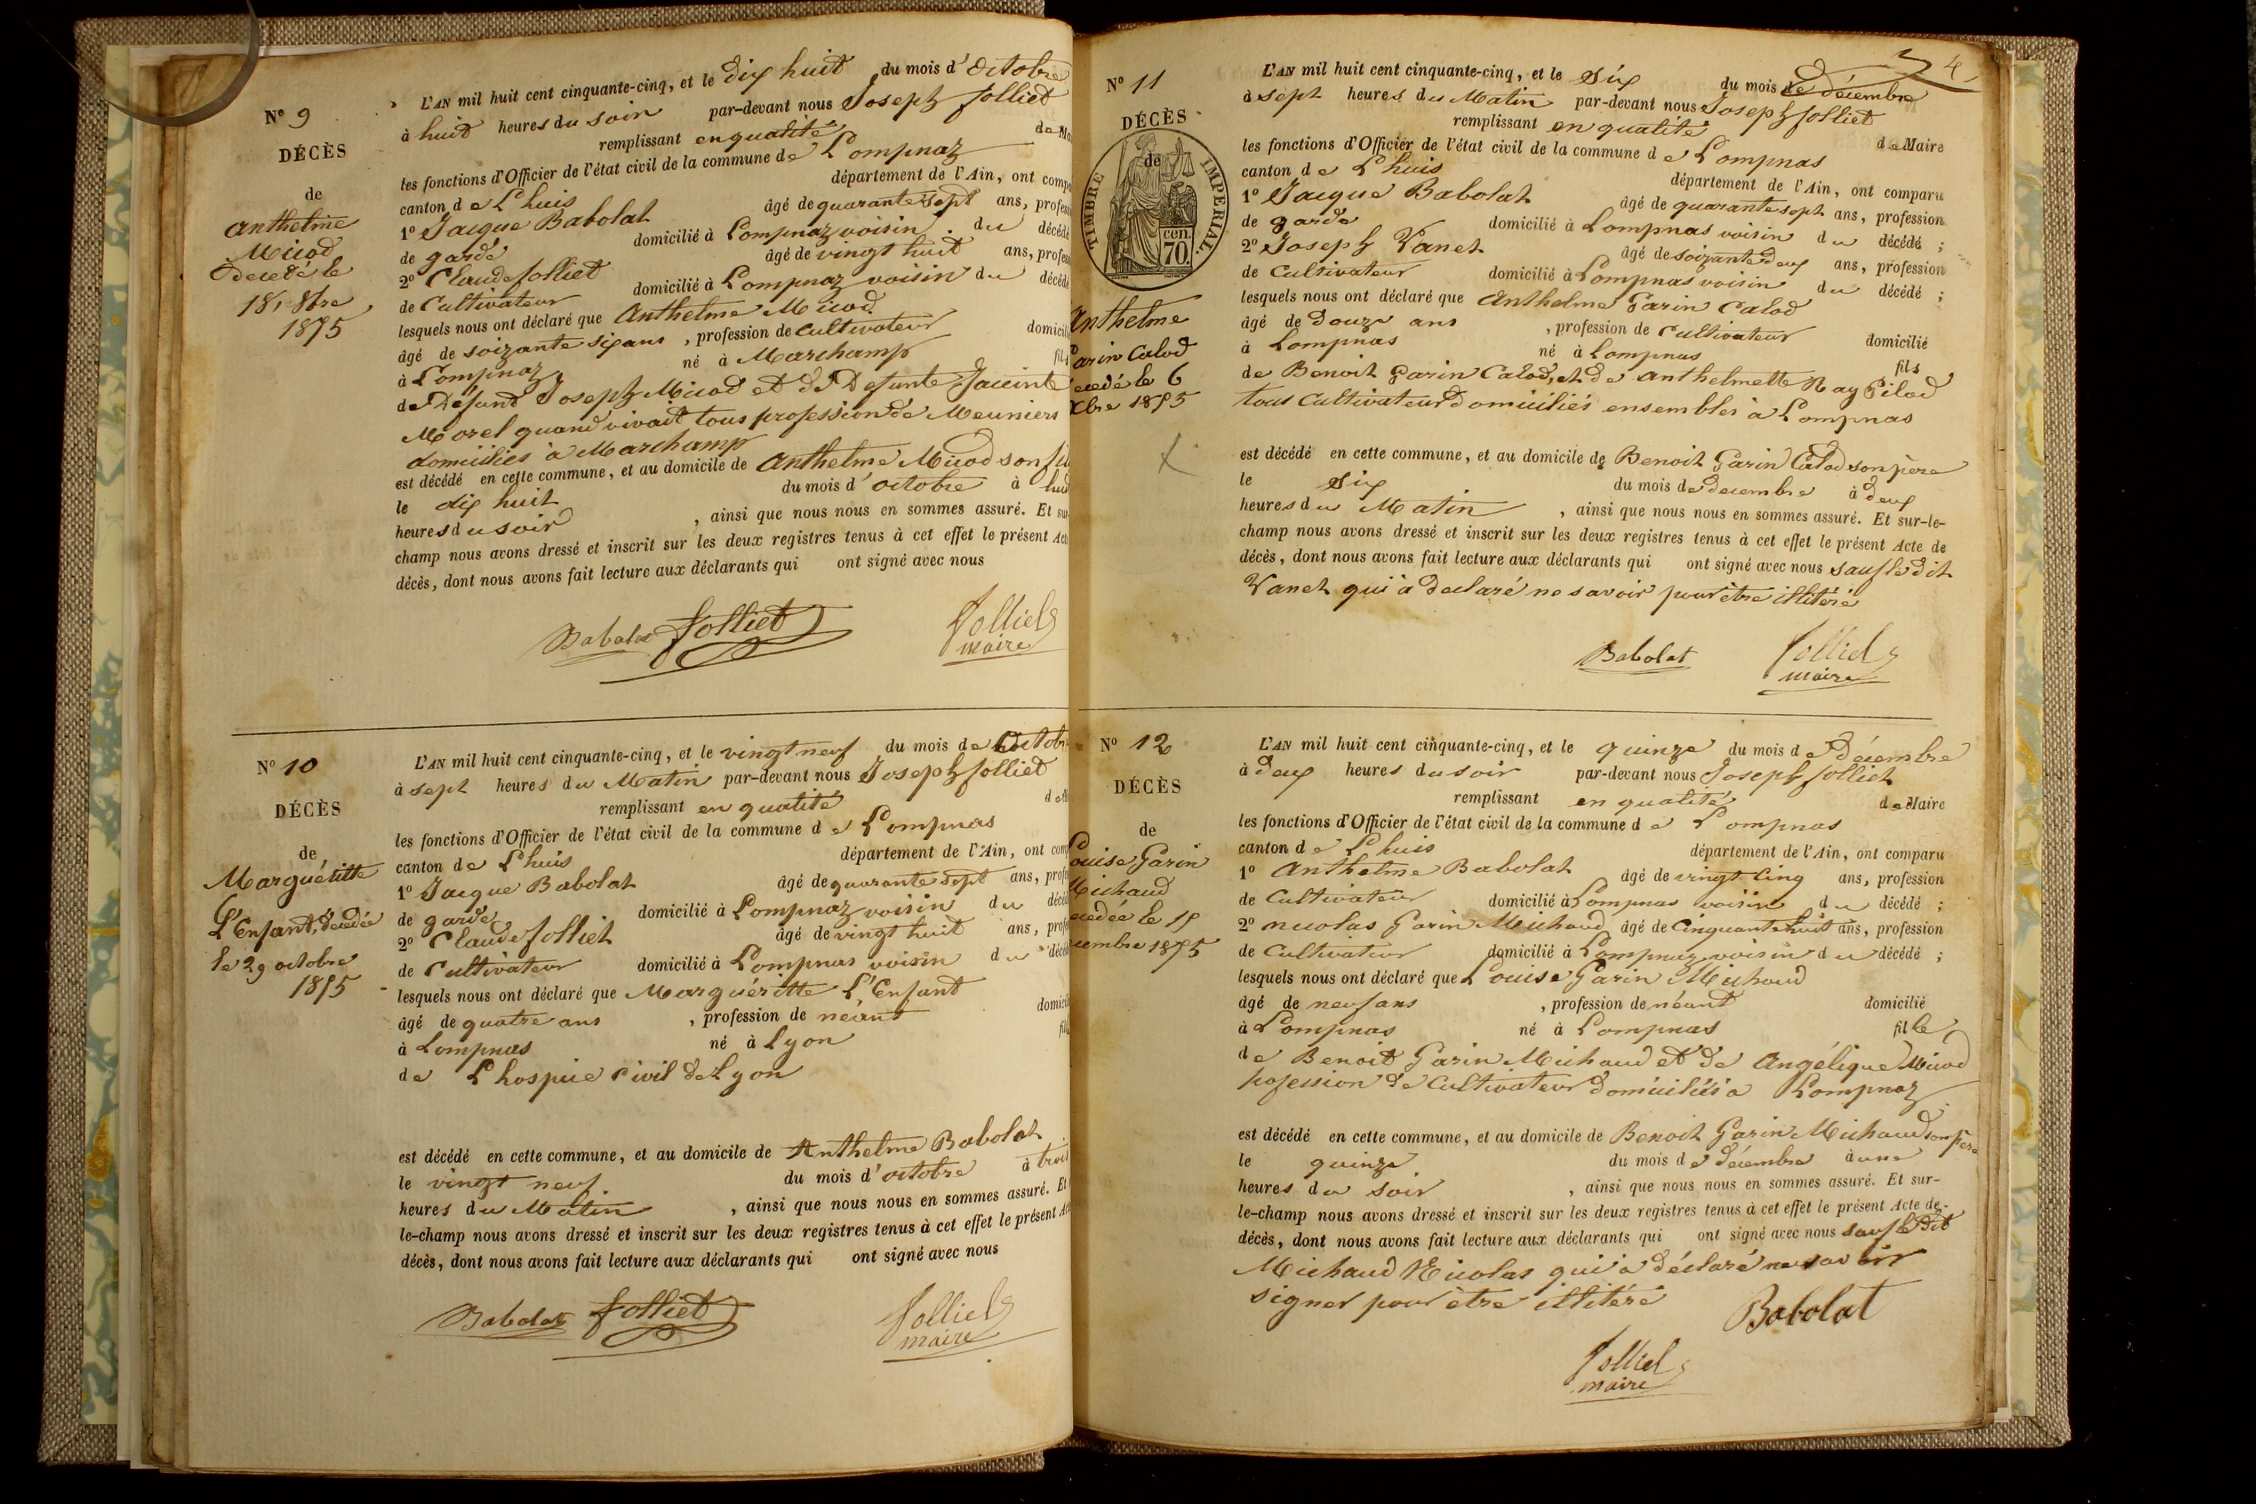 N° 9
DÉCÈS
de
Anthelme
Micod
Decedé le
18, 8bre
1855
L'AN mil huit cent cinquante-cinq, et le dix huit du mois d'octobre
à huit heures du soir par-devant nous Joseph Jolliet
remplissant en qualité de Ma
les fonctions d'Officier de l'état civil de la commune de Lompnaz
canton de Lhuis département de l'Ain, ont compa
1° Jacque Babolat âgé de quarante sept ans, profess
de garde domicilié à Lompnaz voisin du décédé
2° Claude Jolliet âgé de vingt huit ans, profess
de Cultivateur domicilié à Lompnaz voisin du décédé
lesquels nous ont déclaré que Anthelme Micod
âgé de soizante six ans, profession de Cultivateur domicili
à Lompnaz né à Marchamp fils
de Défunt Joseph Micod et de Defunte Jacinte
Morel quand vivait tous profession de Meuniers
domiciliés à Marchamp
est décédé en cette commune, et au domicile de Anthelme Micod son fil
le dix huit du mois d'octobre à huit
heures du soir, ainsi que nous nous en sommes assuré. Et sur
champ nous avons dressé et inscrit sur les deux registres tenus à cet effet le présent Acte
décès, dont nous avons fait lecture aux déclarants qui ont signé avec nous
Babolat Jolliet Jolliet
maire
N° 10
DÉCÈS
de
Marguéritte
L'Enfant, Décedée
le 29 octobre
1855
L'AN mil huit cent cinquante-cinq, et le vingt neuf du mois de Octobr
à sept heures du Matin par-devant nous Joseph Jolliet
remplissant en qualité de M
les fonctions d'Officier de l'état civil de la commune de Lompnas
canton de Lhuis département de l'Ain, ont comp
1° Jacque Babolat âgé de quarante sept ans, profe
de garde domicilié à Lompnaz voisin du décéd
2° Claude Jolliet âgé de vingt huit ans, profe
de Cultivateur domicilié à Lompnas voisin du décéd
lesquels nous ont déclaré que Marguéritte L'Enfant
âgé de quatre ans, profession de neant domicili
à Lompnas né à Lyon fil
de L hospice Civil de Lyon
est décédé en cette commune, et au domicile de Anthelme Babolat
le vingt neuf du mois d'octobre à trois
heures du Matin, ainsi que nous nous en sommes assuré. Et
le-champ nous avons dressé et inscrit sur les deux registres tenus à cet effet le présent Ac
décès, dont nous avons fait lecture aux déclarants qui ont signé avec nous
Babolat Jolliet Jolliet
maire
4
N° 11
DÉCÈS
de
TIMBRE IMPERIAL.
cen.
70.
Anthelme
Garin Calod
ecedé le 6
Xbre 1855
L'AN mil huit cent cinquante-cinq, et le Six du mois de décembre
à sept heures du Matin par-devant nous Joseph Jolliet
remplissant en qualité de Maire
les fonctions d'Officier de l'état civil de la commune de Lompnas
canton de Lhuis département de l'Ain, ont comparu
1° Jacque Babolat âgé de quarante sept ans, profession
de garde domicilié à Lompnas voisin du décédé ;
2° Joseph Vanet âgé de soizante deux ans, profession
de Cultivateur domicilié à Lompnas voisin du décédé ;
lesquels nous ont déclaré que Anthelme Garin Calod
âgé de Douze ans, profession de Cultivateur domicilié
à Lompnas né à Lompnas fils
de Benoit Garin Calod, et de Anthelmette Ray Pilod
tous Cultivateur Domiciliés ensembles à Lompnas
est décédé en cette commune, et au domicile de Benoit Garin Calod son père
le Six du mois de decembre à deux
heures du Matin, ainsi que nous nous en sommes assuré. Et sur-le-
champ nous avons dressé et inscrit sur les deux registres tenus à cet effet le présent Acte de
décès, dont nous avons fait lecture aux déclarants qui ont signé avec nous sauf le dit
Vanet qui à declaré ne savoir pour être illitéré
Babolat Jolliet
maire
N° 12
DÉCÈS
de
Louise Garin
Michaud
ecedée le 15
cembre 1855
L'AN mil huit cent cinquante-cinq, et le quinze du mois de Décembre
à deux heures du soir par-devant nous Joseph Jolliet
remplissant en qualité de Maire
les fonctions d'Officier de l'état civil de la commune de Lompnas
canton de Lhuis département de l'Ain, ont comparu
1° Anthelme Babolat âgé de vingt Cinq ans, profession
de Cultivateur domicilié à Lompnas voisin du décédé ;
2° nicolas Garin Michaud âgé de Cinquante huit ans, profession
de Cultivateur domicilié à Lompnaz voisin du décédé ;
lesquels nous ont déclaré que Louise Garin Michaud
âgé de neuf ans, profession de néant domicilié
à Lompnas né à Lompnas fille
de Benoit Garin Michaud et de Angélique Micod
Pofession de Cultivateur domiciliés à Lompnaz
est décédé en cette commune, et au domicile de Benoit Garin Michaud son Père
le quinze du mois de décembre à une
heures du soir, ainsi que nous nous en sommes assuré. Et sur-
le-champ nous avons dressé et inscrit sur les deux registres tenus à cet effet le présent Acte de
décès, dont nous avons fait lecture aux déclarants qui ont signé avec nous sauf le Dit
Michaud Nicolas qui à déclaré ne savoir
signer pour être illitéré
Babolat
Jolliet
maire